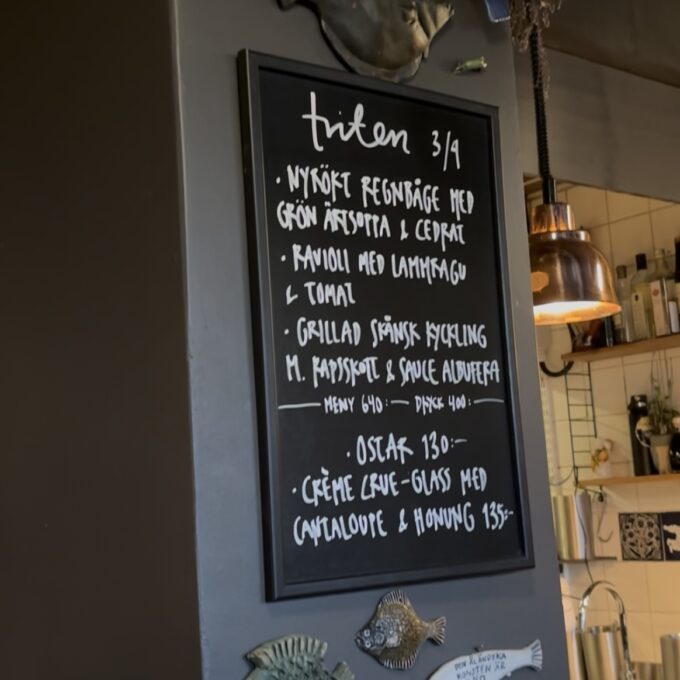 triten 3/4
· NYRÖKT REGNBÅGE MED
GRÖN ÄRTSOTTA & CEDRAT
· RAVIOLI MED LAMMRAGU
& TOMAT
· GRILLAD SKÅNSK KYCKLING
M. RAPSSKOTT & SAUCE ALBUFERA
MENY 640:- DRYCK 400:-
· OSTAR 130:-
· CRÈME CRUE-GLASS MED
CANTALOUPE & HONUNG 135:-
DEN ÅLÄNDSKA
KONSTEN ÄR